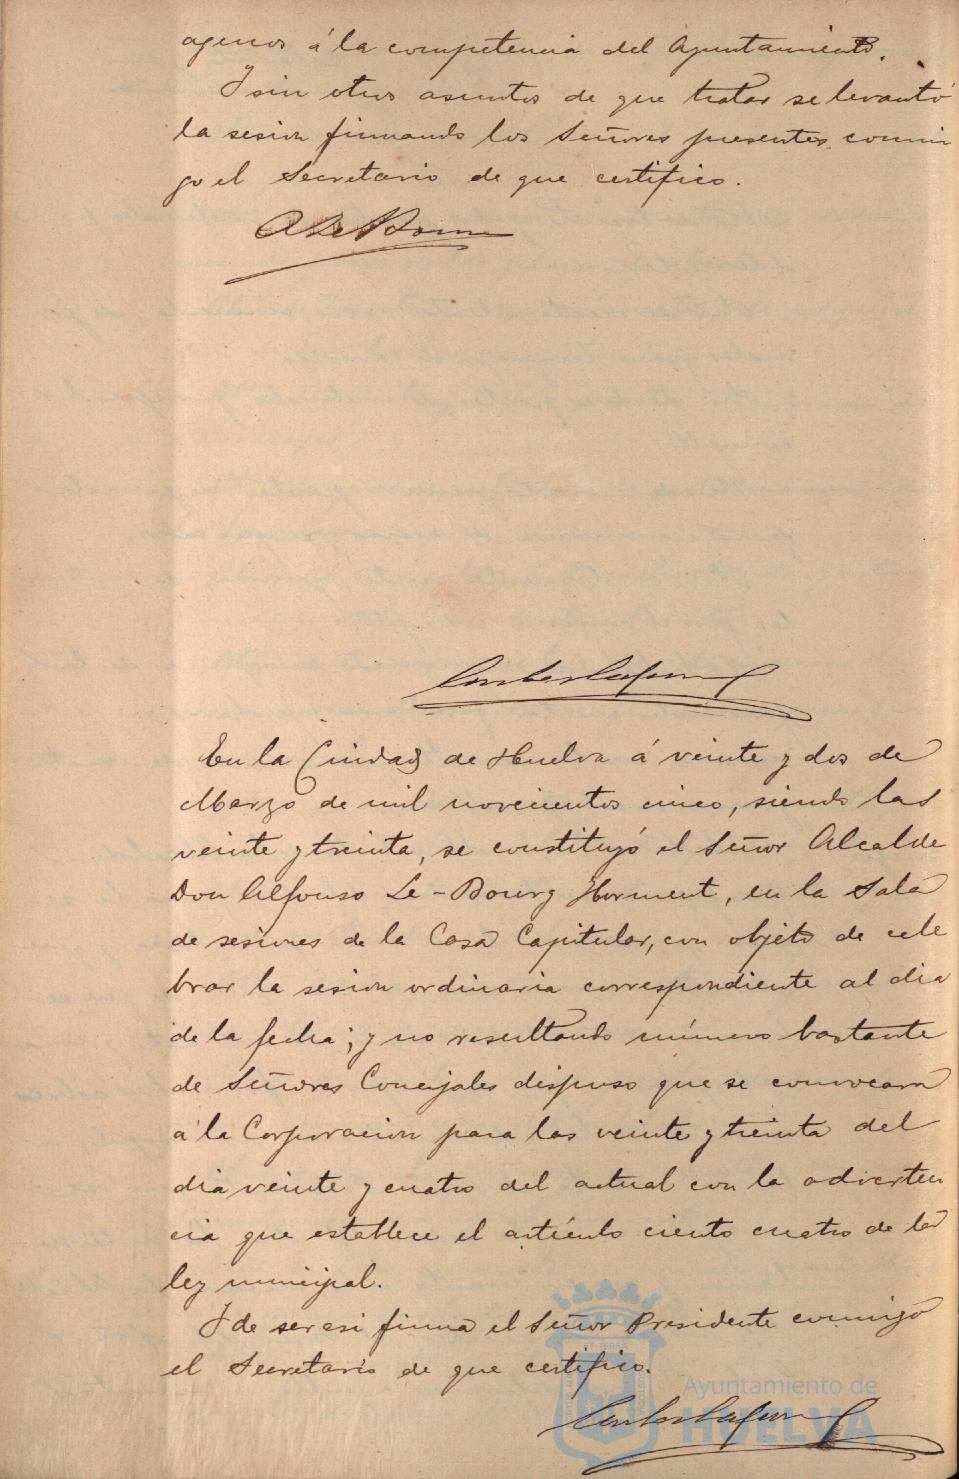 agenos á la competencia del Ayuntamiento.
Y sin otros asuntos de que tratar se levantó
la sesion firmando los Señores presentes conmi
go el Secretario de que certifico.
En la Ciudad de Huelva á veinte y dos de
Marzo de mil novecientos cinco, siendo las
veinte y treinta, se constituyó el Señor Alcalde
Don Alfonso Le-Bourg Horment, en la Sala
de sesiones de la Casa Capitular, con objeto de cele
brar la sesion ordinaria correspondiente al dia
de la fecha; y no resultando número bastante
de Señores Concejales dispuso que se convocara
a la Corporacion para las veinte y treinta del
dia veinte y cuatro del actual con la adverten
cia que establece el artículo ciento cuatro de la
ley municipal.
Y de ser asi firma el Señor Presidente conmigo
el Secretario de que certifico.
Ayuntamiento de
HUELVA